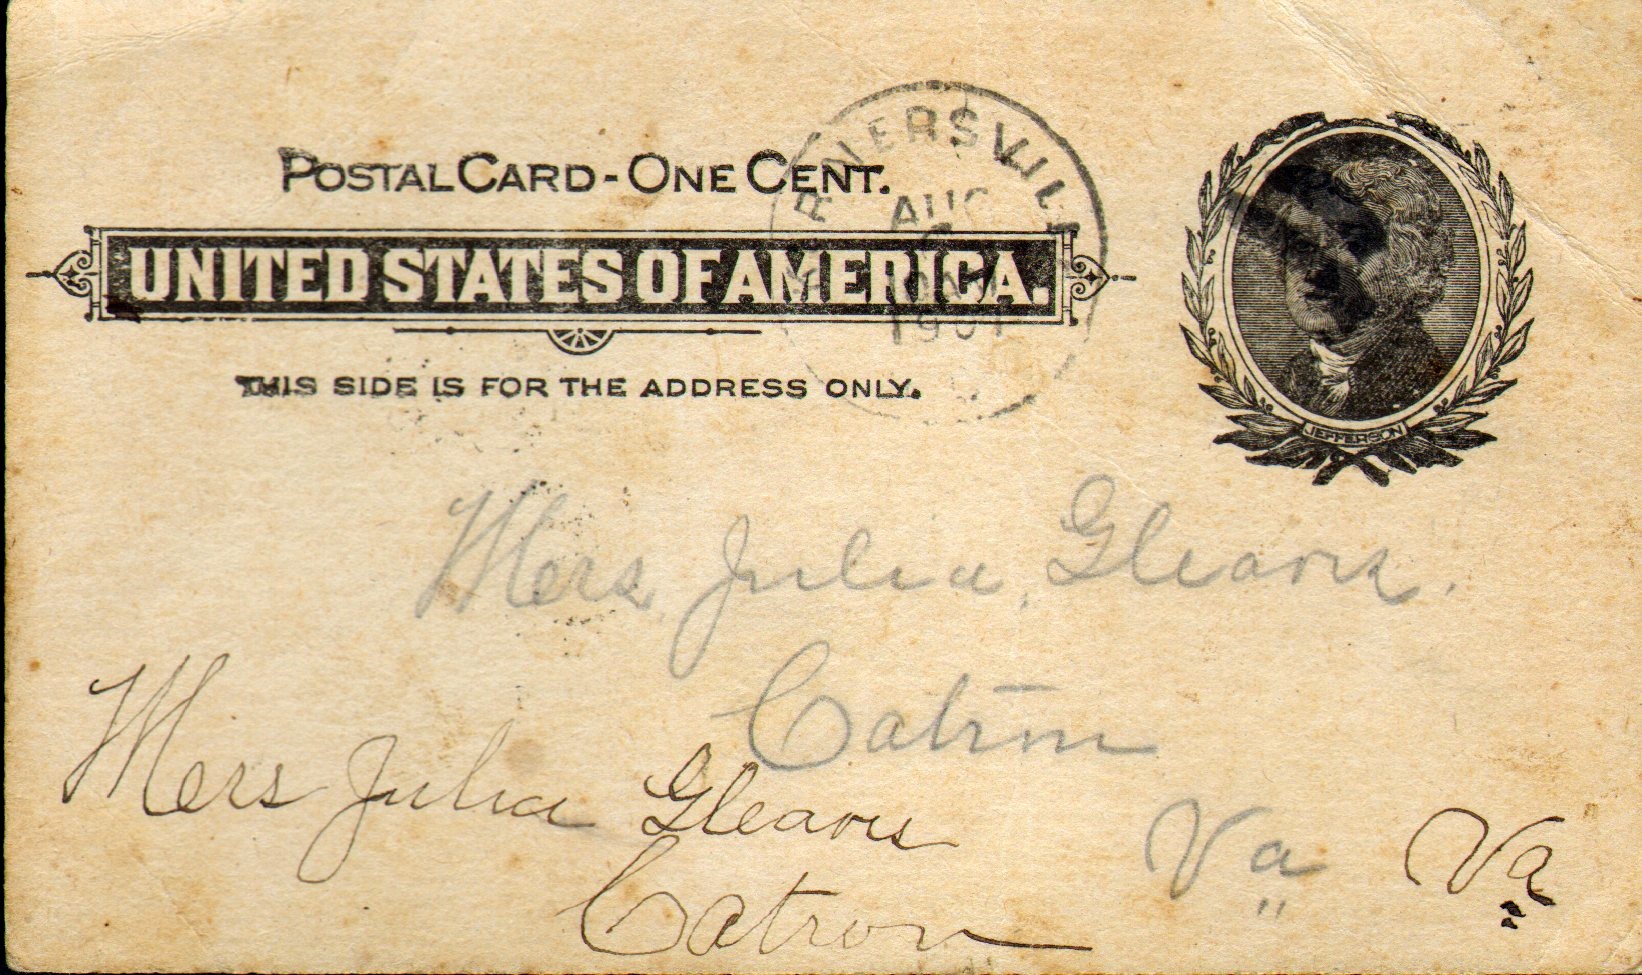 POSTAL CARD - ONE CENT.
UNITED STATES OF AMERICA.
THIS SIDE IS FOR THE ADDRESS ONLY.
AUG
1901
JEFFERSON
Mers Julia Gleaves.
Catron
Va
Mers Julia Gleaves
Catron
Va